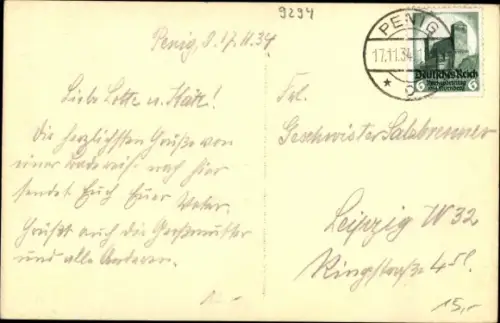 9294
Penig, d. 17.11.34
PENIG
17.11.34
Deutsches Reich
Reichsparteitag
6 6
Liebe Lotte u. Käte!
Die herzlichsten Grüße von
einer nach hier
sendet Euch Euer Vater.
Grüßt auch die Großmutter
und alle Anderen.
Frl.
Geschwister Salzbrenner
Leipzig W 32
Ringstraße 45 I.
15,-